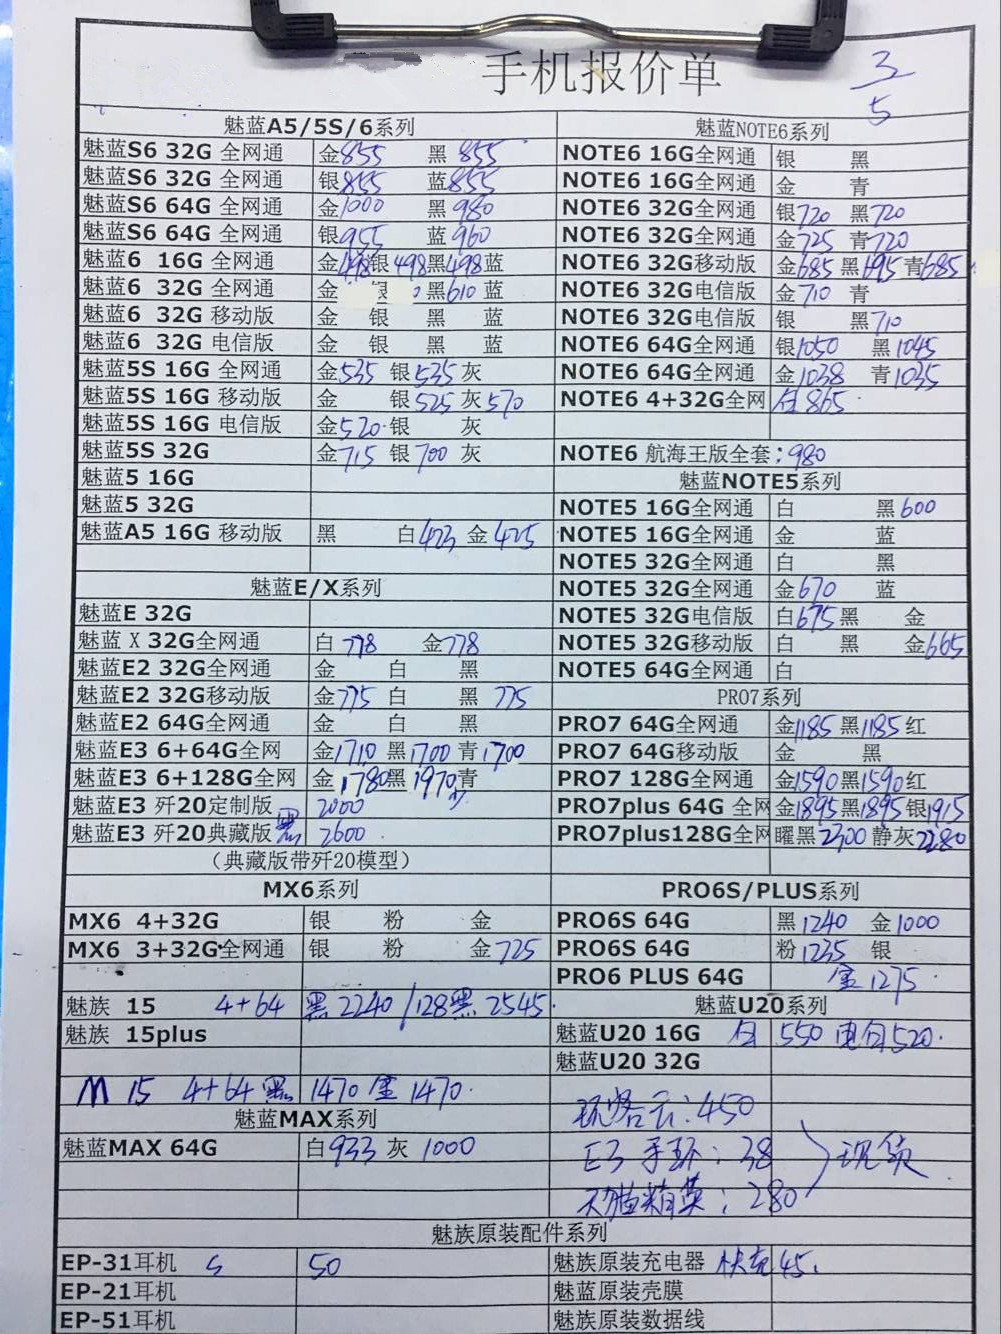 手机报价单
3/5
魅蓝A5/5S/6系列
魅蓝S6 32G 全网通 金855 黑855
魅蓝S6 32G 全网通 银855 蓝855
魅蓝S6 64G 全网通 金1000 黑980
魅蓝S6 64G 全网通 银955 蓝960
魅蓝6 16G 全网通 金498银498黑498蓝
魅蓝6 32G 全网通 金 银 黑610 蓝
魅蓝6 32G 移动版 金 银 黑 蓝
魅蓝6 32G 电信版 金 银 黑 蓝
魅蓝5S 16G 全网通 金535 银535 灰
魅蓝5S 16G 移动版 金 银525 灰570
魅蓝5S 16G 电信版 金520 银 灰
魅蓝5S 32G 金715 银700 灰
魅蓝5 16G
魅蓝5 32G
魅蓝A5 16G 移动版 黑 白423 金425
魅蓝E/X系列
魅蓝E 32G
魅蓝 X 32G全网通 白778 金778
魅蓝E2 32G全网通 金 白 黑
魅蓝E2 32G移动版 金775 白 黑775
魅蓝E2 64G全网通 金 白 黑
魅蓝E3 6+64G全网 金1710 黑1700 青1700
魅蓝E3 6+128G全网 金1780黑1970青
魅蓝E3 歼20定制版 2000
魅蓝E3 歼20典藏版 黑 2600
（典藏版带歼20模型）
MX6系列
MX6 4+32G 银 粉 金
MX6 3+32G全网通 银 粉 金725
魅族 15 4+64 黑2240/128黑2545
魅族 15plus
M 15 4+64 黑 1470 金 1470
魅蓝MAX系列
魅蓝MAX 64G 白933 灰 1000
魅蓝NOTE6系列
NOTE6 16G全网通 银 黑
NOTE6 16G全网通 金 青
NOTE6 32G全网通 银720 黑720
NOTE6 32G全网通 金725 青720
NOTE6 32G移动版 金685 黑695 青685
NOTE6 32G电信版 金710 青
NOTE6 32G电信版 银 黑710
NOTE6 64G全网通 银1050 黑1045
NOTE6 64G全网通 金1038 青1035
NOTE6 4+32G全网 865
NOTE6 航海王版全套：980
魅蓝NOTE5系列
NOTE5 16G全网通 白 黑600
NOTE5 16G全网通 金 蓝
NOTE5 32G全网通 白 黑
NOTE5 32G全网通 金670 蓝
NOTE5 32G电信版 白675黑 金
NOTE5 32G移动版 白 黑 金665
NOTE5 64G全网通 白
PRO7系列
PRO7 64G全网通 金1185黑1185红
PRO7 64G移动版 金 黑
PRO7 128G全网通 金1590黑1590红
PRO7plus 64G 全网 金1895黑1895银1915
PRO7plus128G全网 曜黑2300 静灰2280
PRO6S/PLUS系列
PRO6S 64G 黑1240 金1000
PRO6S 64G 粉1235 银
PRO6 PLUS 64G 金1275
魅蓝U20系列
魅蓝U20 16G 白 550 电白520
魅蓝U20 32G
450
E3 手环：38 现货
天猫精英：280
魅族原装配件系列
EP-31耳机 50
EP-21耳机
EP-51耳机
魅族原装充电器 快充45
魅蓝原装壳膜
魅族原装数据线